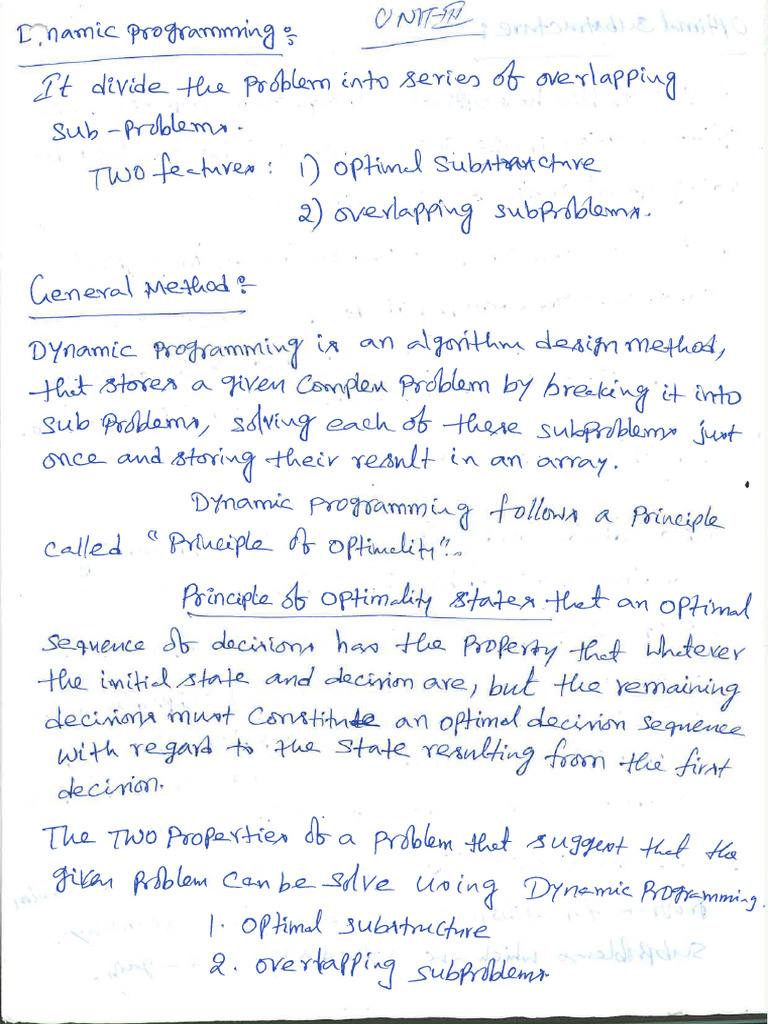 UNIT-III
Dynamic Programming:
It divide the Problem into series of overlapping
sub-Problems.
Two features: 1) Optimal Substructure
2) overlapping subproblems.
General Method:
Dynamic Programming is an algorithm design method,
that stores a given Complex Problem by breaking it into
sub Problems, solving each of these subproblems just
once and storing their result in an array.
Dynamic Programming follows a Principle
called "Principle of Optimality".
Principle of Optimality states that an optimal
sequence of decisions has the Property that whatever
the initial state and decision are, but the remaining
decisions must constitute an optimal decision sequence
with regard to the state resulting from the first
decision.
The Two Properties of a problem that suggest that the
given Problem can be solve using Dynamic Programming.
1. Optimal substructure
2. overlapping subproblems